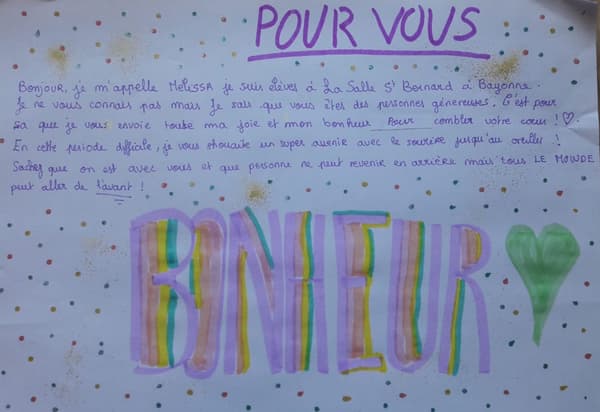 POUR VOUS
Bonjour, je m'appelle MELISSA je suis élèves à La Salle St Bernard à Bayonne.
Je ne vous connais pas mais je sais que vous êtes des personnes génereuses. C'est pour
sa que je vous envoie toute ma joie et mon bonheur Pour combler votre cœur ! ♡.
En cette periode difficile, je vous souhaite un super avenir avec le sourire jusqu'au oreilles !
Sachez que on est avec vous et que personne ne peut revenir en arrière mais tous LE MONDE
peut aller de l'avant !
BONHEUR